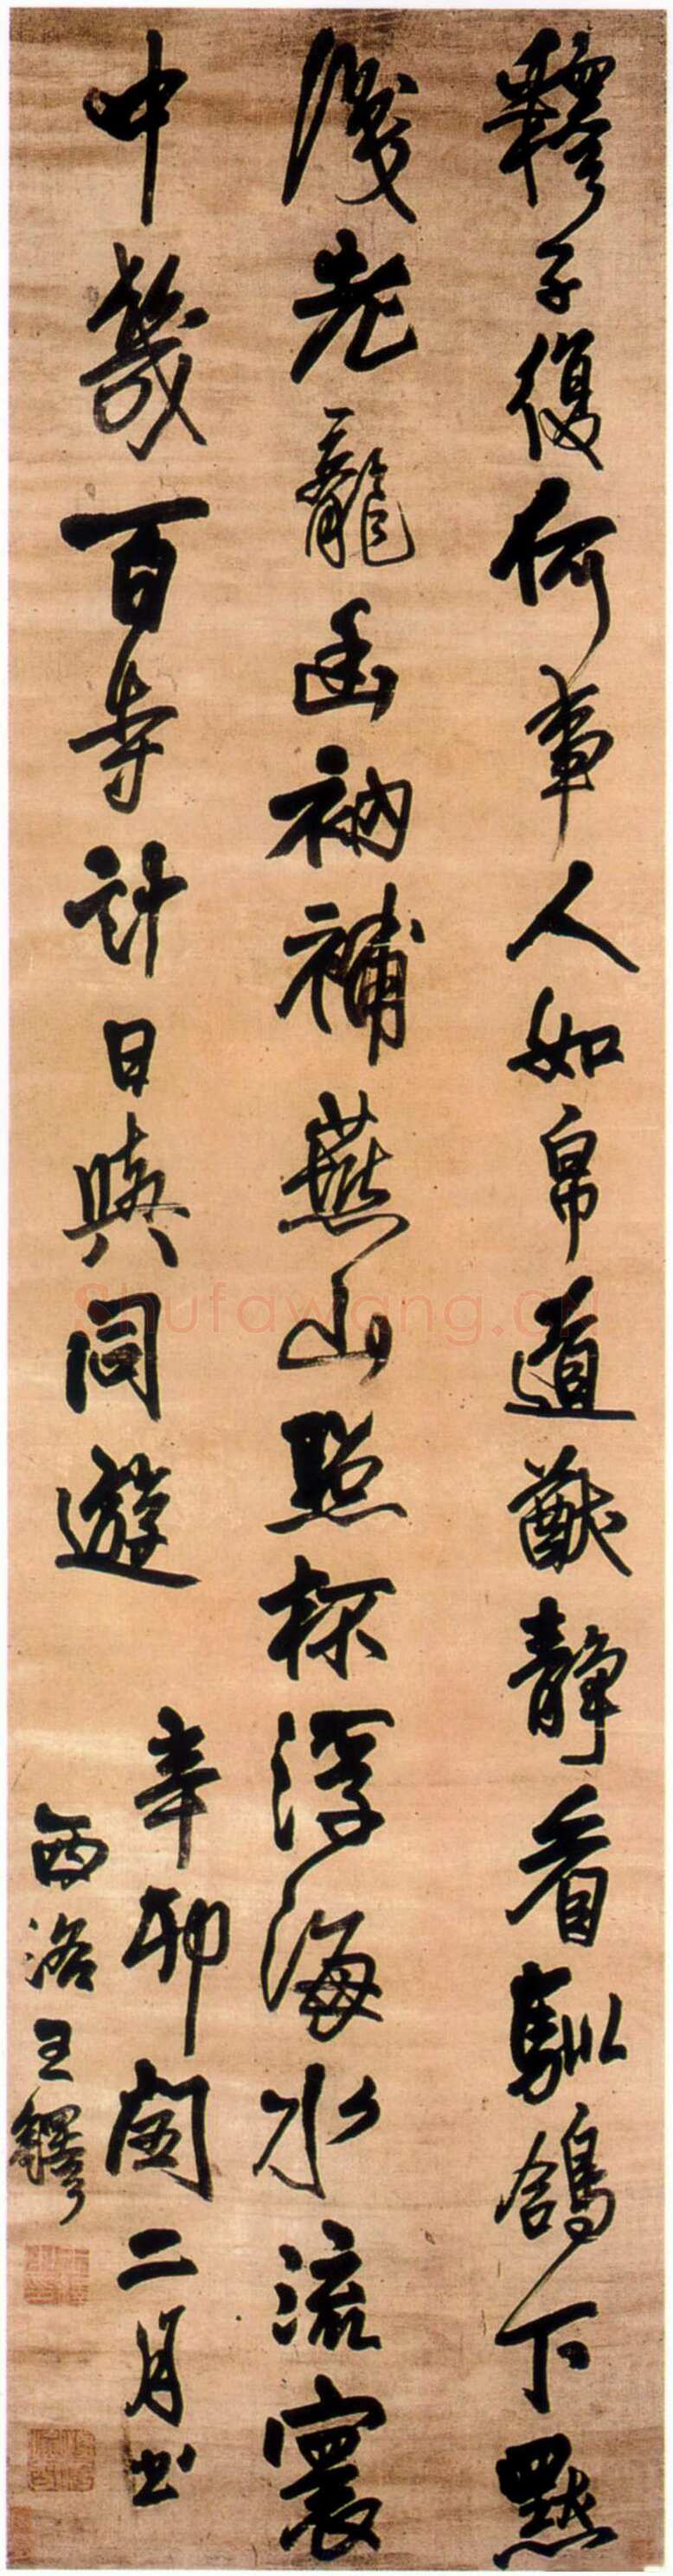 釋子復何事人如帛道猷靜看馴鴿下點
淺老龍幽衲補燕山點杯浮海水流寰
中幾百寺計日與同遊
辛卯閏二月書
西洛王鐸
Shufawang.CN